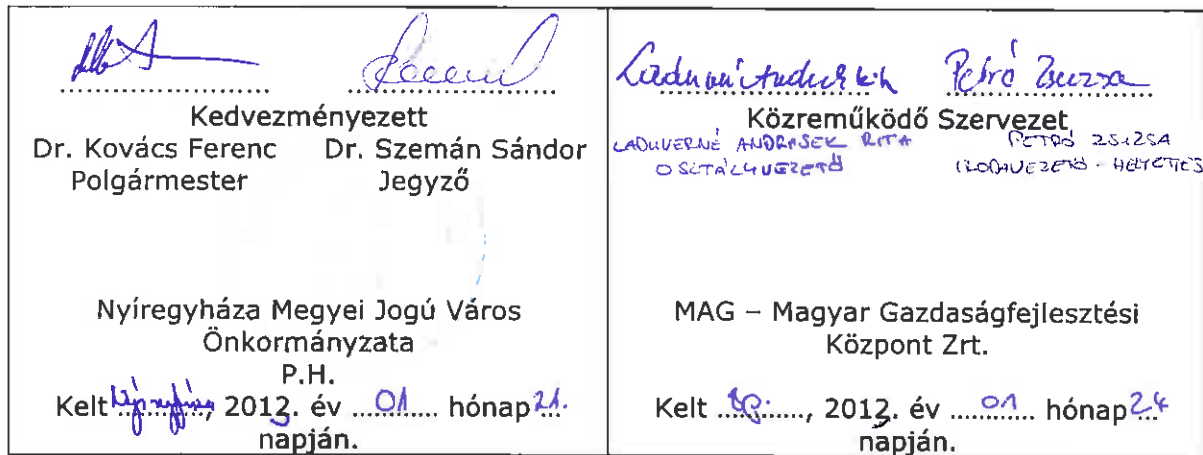 Kedvezményezett
Dr. Kovács Ferenc Dr. Szemán Sándor
Polgármester Jegyző
Nyíregyháza Megyei Jogú Város
Önkormányzata
P.H.
Kelt Nyíregyháza, 2013. év 01 hónap 21.
napján.
Petró Zsuzsa
Közreműködő Szervezet
LADUVERNÉ ANDRASEK RITA PETRÓ ZSUZSA
OSZTÁLYVEZETŐ IRODAVEZETŐ-HELYETTES
MAG – Magyar Gazdaságfejlesztési
Központ Zrt.
Kelt Bp., 2013. év 01 hónap 24
napján.